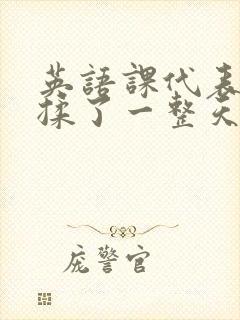 英語課代表
揉了一整天
庞警官